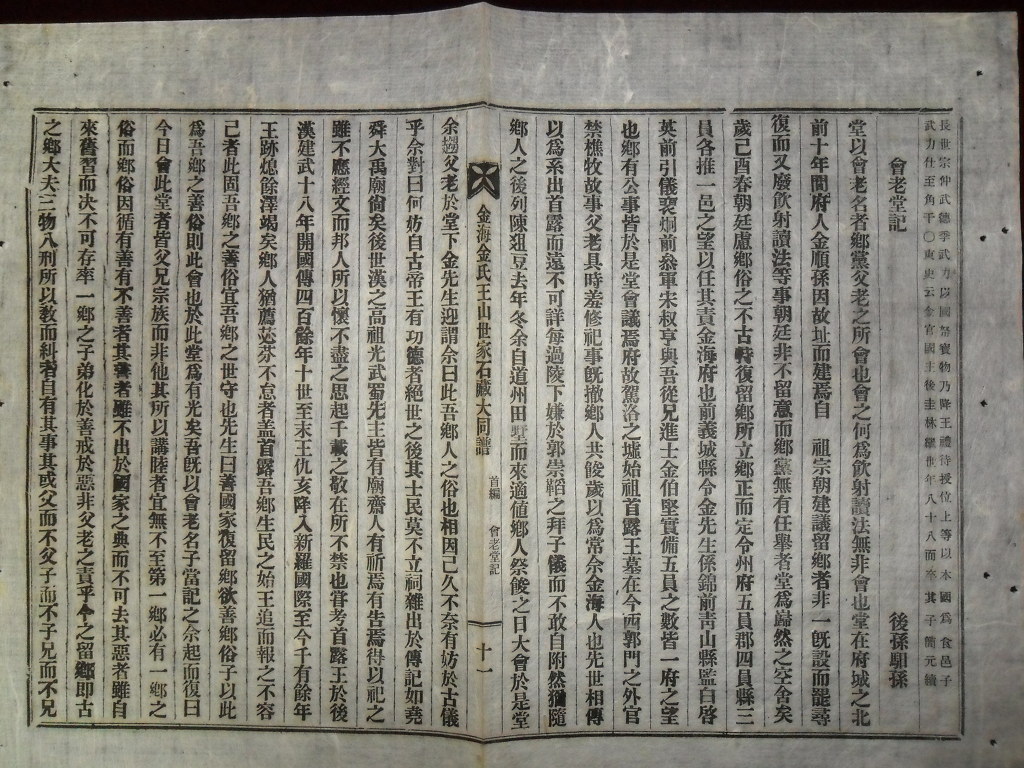 長世宗仲武德季武力以國帑寶物乃降王禮待授位上等以本國爲食邑子
武力仕至角干〇東史云金官國主後圭林纙世年八十八而卒其子簡元續
會老堂記
後孫馹孫
堂以會老名者鄉黨父老之所會也會之何爲飮射讀法無非會也堂在府城之北
前十年間府人金順孫因故址而建焉自 祖宗朝建議留鄉者非一旣設而罷尋
復而又廢飮射讀法等事朝廷非不留意而鄉黨無有任擧者堂爲巋然之空舍矣
歲己酉春朝廷慮鄉俗之不古特復留鄉所立鄉正而定令州府五員郡四員縣三
員各推一邑之望以任其責金海府也前義城縣令金先生係錦前靑山縣監白啓
英前引儀裵炯前叅軍宋叔亨與吾從兄進士金伯堅實備五員之數皆一府之望
也鄉有公事皆於是堂會議焉府故駕洛之墟始祖首露王墓在今西郭門之外官
禁樵牧故事父老具時羞修祀事旣撤鄉人共餕歲以爲常余金海人也先世相傳
以爲系出首露而遠不可詳每過陵下嫌於郭崇韜之拜子儀而不敢自附然猶隨
鄉人之後列陳俎豆去年冬余自道州田墅而來適値鄉人祭餕之日大會於是堂
金海金氏王山世家石藏大同譜 首編 會老堂記 十一
余謁父老於堂下金先生迎謂余曰此吾鄉人之俗也相因己久不奈有妨於古儀
乎余對曰何妨自古帝王有功德者絕世之後其士民莫不立祠雜出於傳記如堯
舜大禹廟尙矣後世漢之高祖光武蜀先主皆有廟齋人有祈焉有告焉得以祀之
雖不應經文而邦人所以懷不盡之思起千載之敬在所不禁也甞考首露王於後
漢建武十八年開國傳四百餘年十世至末王仇亥降入新羅國際至今千有餘年
王跡熄餘澤竭矣鄉人猶薦苾芬不怠者盖首露吾鄉生民之始王追而報之不容
己者此固吾鄉之善俗宜吾鄉之世守也先生曰善國家復留鄉欲善鄉俗子以此
爲吾鄉之善俗則此會也於此堂爲有光矣吾旣以會老名子當記之余起而復曰
今日會此堂者皆父兄宗族而非他其所以講睦者宜無不至第一鄉必有一鄉之
俗而鄉俗因循有善有不善者其善者雖不出於國家之典而不可去其惡者雖自
來舊習而决不可存率一鄉之子弟化於善戒於惡非父老之責乎今之留鄉即古
之鄉大夫三物八刑所以敎而糾者自有其事其或父而不父子而不子兄而不兄